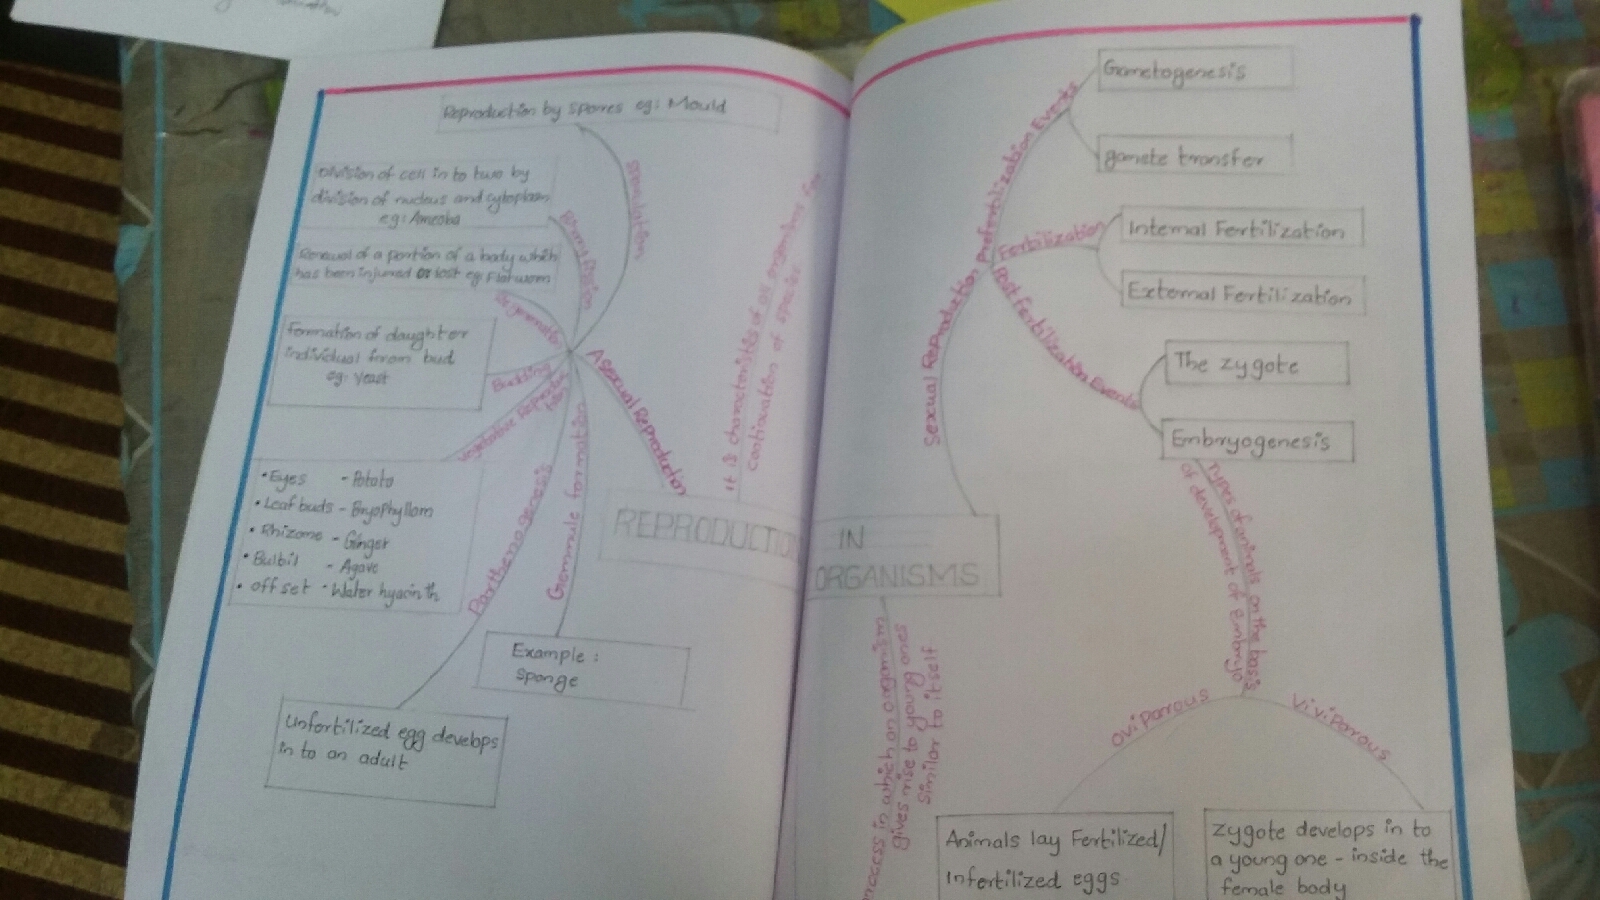 Reproduction by spores eg: Mould
sporulation
Division of cell in to two by
division of nucleus and cytoplasm
eg: Ameoba
Binary fission
Renewal of a portion of a body which
has been injured or lost eg: Flatworm
Regeneration
Formation of daughter
individual from bud
eg: Yeast
Budding
Vegetative
• Eyes - Potato
• Leaf buds - Bryophyllom
• Rhizome - Ginger
• Bulbil - Agave
• offset - Water hyacinth
Parthenogenesis
Unfertilized egg develops
in to an adult
Gemmule formation
Example :
Sponge
Asexual Reproduction
It is characteristics of all organisms for
continuation of species
REPRODUCTION IN
ORGANISMS
in which an organism
gives rise to young ones
similar to itself
Sexual Reproduction
Prefertilization Events
Gametogenesis
gamete transfer
Fertilization
Internal Fertilization
External Fertilization
Post Fertilization Events
The zygote
Embryogenesis
Types of animals on the basis
of development of Embryo
Oviparous
Viviparous
Animals lay Fertilized/
Infertilized eggs
Zygote develops in to
a young one - inside the
female body